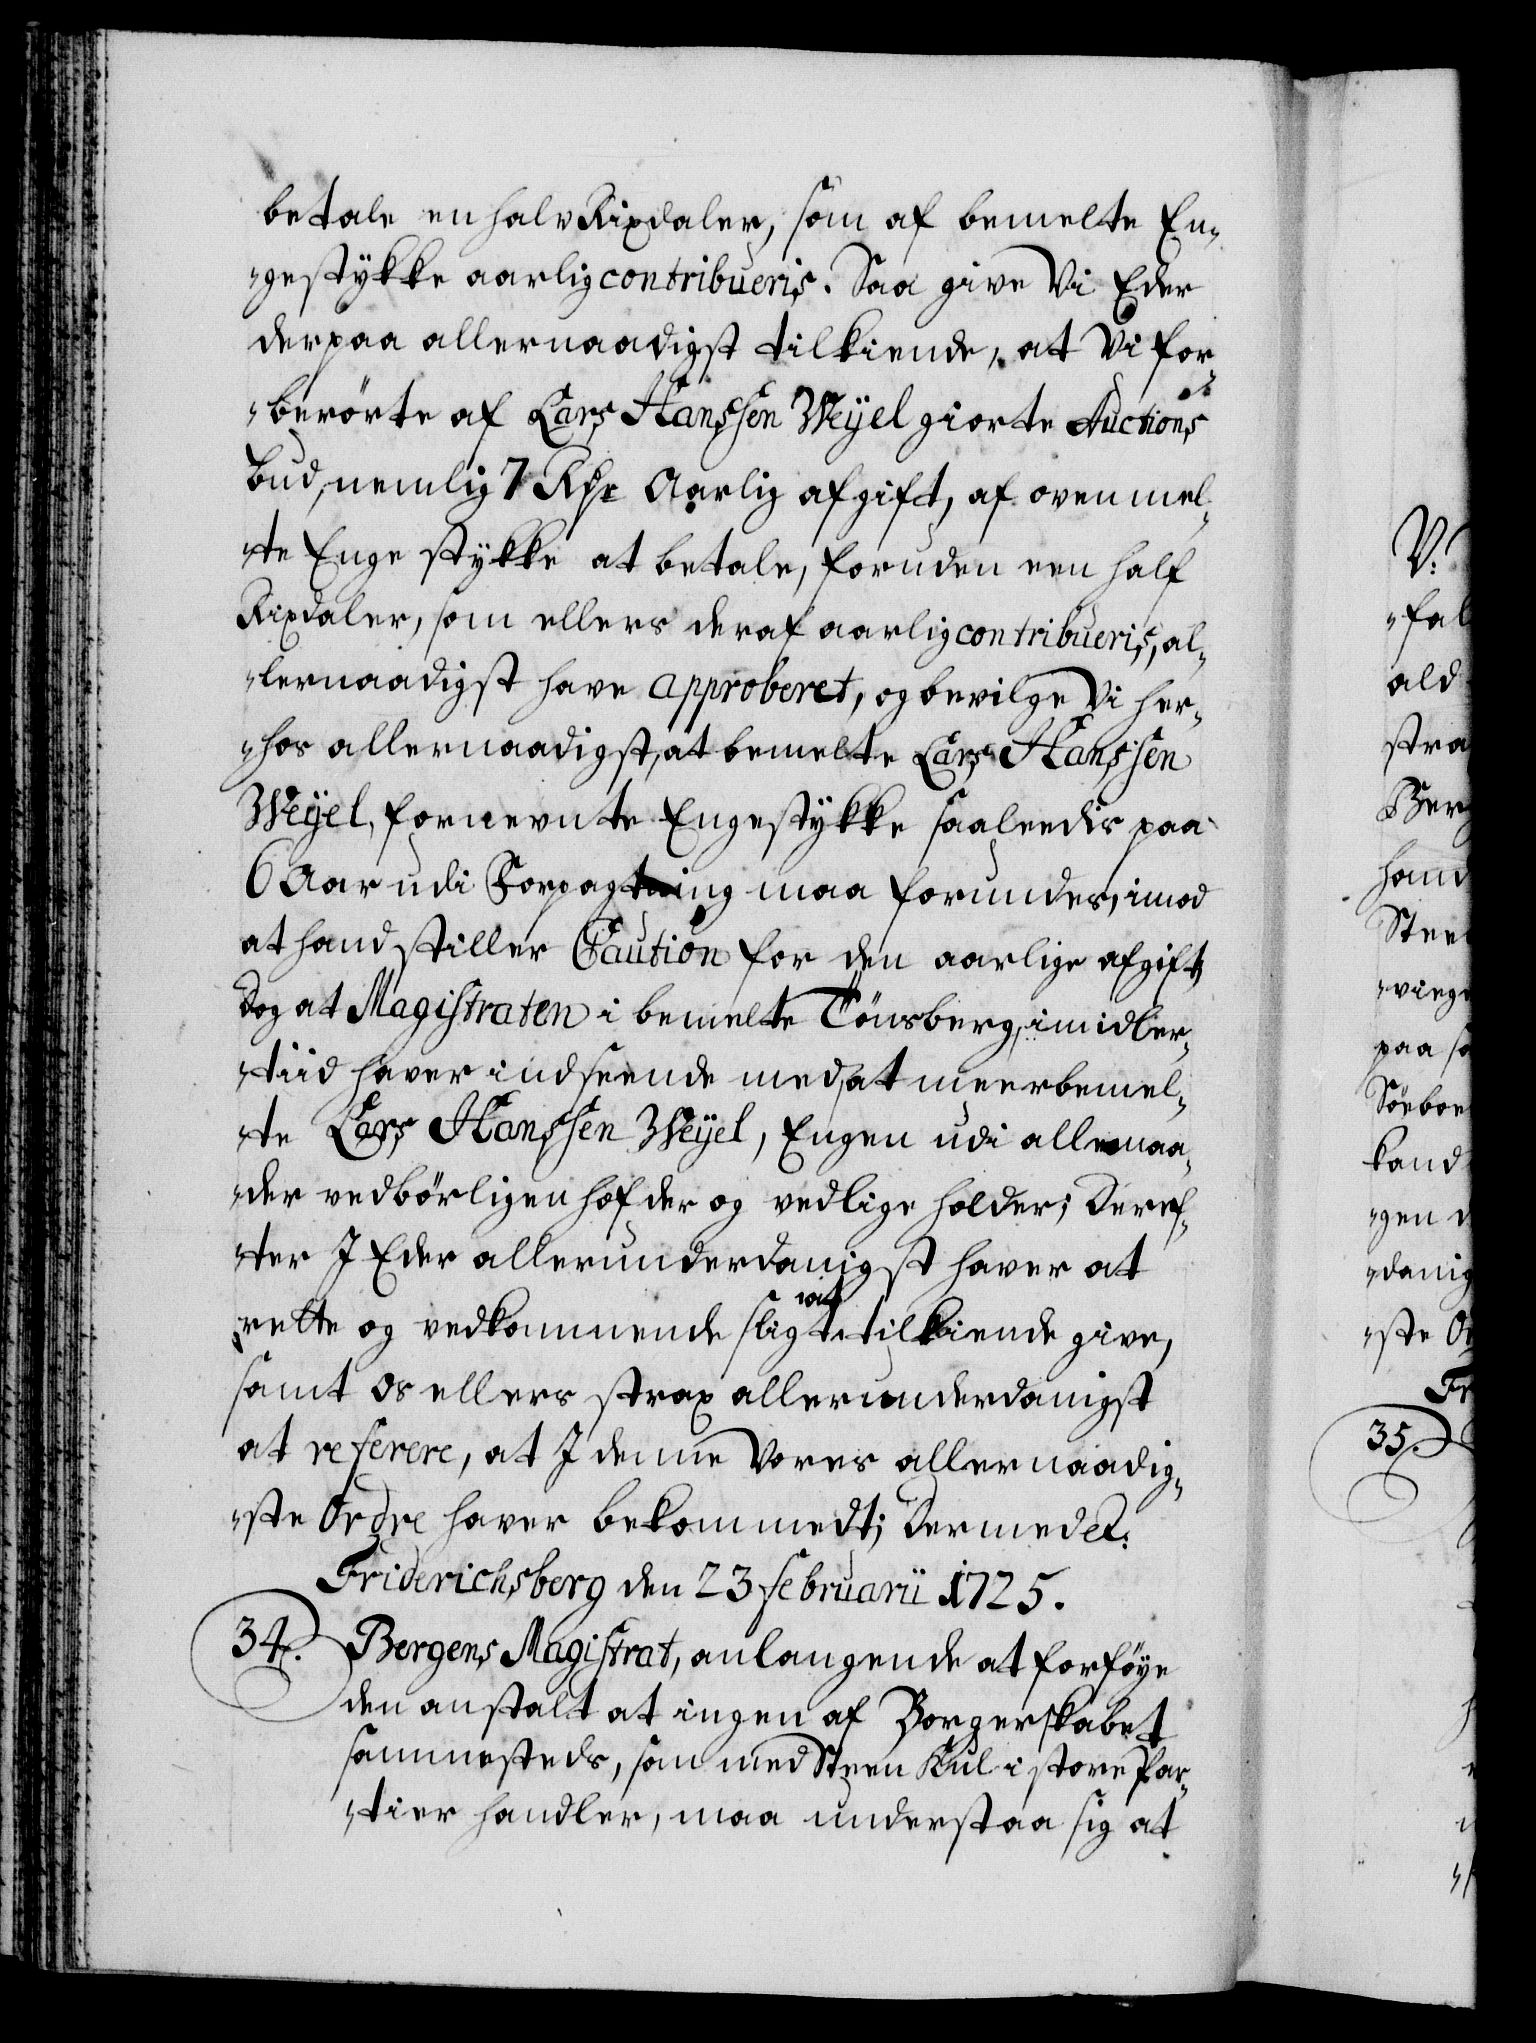 betale en halv Rixdaler, som af bemelte En-
-gestykke aarlig contribueris. Saa give Vi Eder
derpaa allernaadigst tilkiende, at Vi for-
-berørte af Lars Hanssen Weyel giorte Auctions
bud, nemlig 7 Rdr Aarlig afgift, af ovenmel-
-te Enge stykke at betale, foruden een half
Rixdaler, som ellers deraf aarlig contribueris, al-
-lernaadigst have approberet, og bevilge Vi her-
-hos allernaadigst, at bemelte Lars Hanssen
Weyel, fornevnte Engestykke saaleedis paa
6 Aar udi Forpagtning maa forundes, imod
at hand stiller Caution for den aarlige afgift,
Dog at Magistraten i bemelte Tönsberg, imidler-
-tiid haver indseende med, at meerbemel-
-te Lars Hanssen Weyel, Engen udi alle maa-
-der vedbörligen hæfder og vedlige holder; Deref-
-ter I Eder allerunderdanigst haver at
rette og vedkommende sligt tilkiende give,
samt os ellers strax allerunderdanigst
at referere, at I denne Vores allernaadig-
-ste Ordre haver bekommedt; Dermed et:
Friderichsberg den 23 februarii 1725.
34. Bergens Magistrat, anlangende at forföye
den anstalt at ingen af Borgerskabet
sammesteds, som med Steen Kul i store Par-
-tier handler, maa understaa sig at
V:
-fal
ald
stra
Berg
hand
Stee
paa so
Söeboe
kand
-gen d
-danig
-ste O
Fr
35.